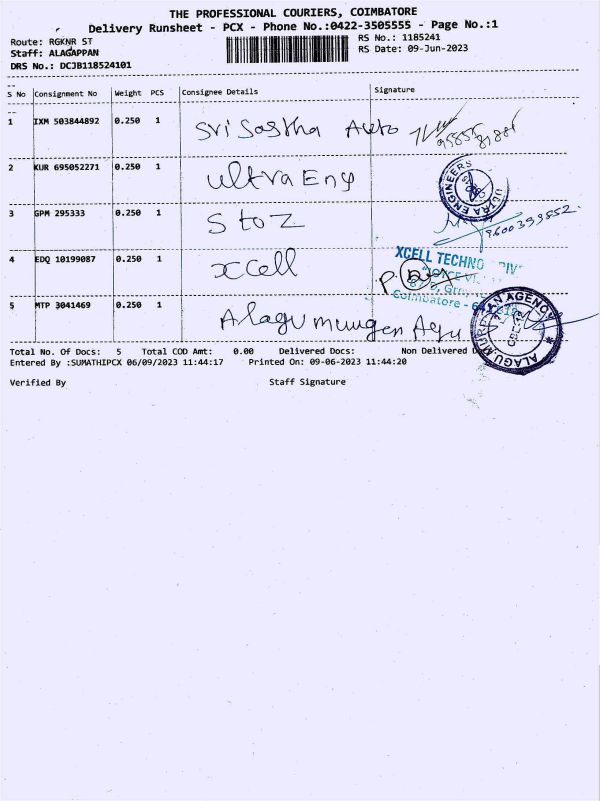 THE PROFESSIONAL COURIERS, COIMBATORE
Delivery Runsheet - PCX - Phone No.:0422-3505555 - Page No.:1
Route: RGKNR ST
RS No.: 1185241
Staff: ALAGAPPAN
RS Date: 09-Jun-2023
DRS No.: DCJB118524101
S No Consignment No Weight PCS Consignee Details Signature
1 IXM 503844892 0.250 1 Sri Sastha Auto
2 KUR 695052271 0.250 1 Ultra Eng
ULTRA ENGINEERS
3 GPM 295333 0.250 1 S to Z 9600399852
4 EDQ 10199087 0.250 1 xcell
XCELL TECHNO
Coimbatore - 641
5 MTP 3041469 0.250 1 Alagu murugan Agu
ALAGU MURUGAN AGENCY
Total No. Of Docs: 5 Total COD Amt: 0.00 Delivered Docs: Non Delivered
Entered By :SUMATHIPCX 06/09/2023 11:44:17 Printed On: 09-06-2023 11:44:20
Verified By Staff Signature